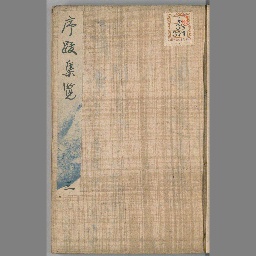 序跋集覧
二